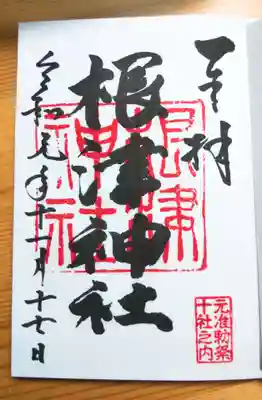 奉拝
元准勅祭
十社之内
根津神社
根津
神社
令和元年十一月十七日